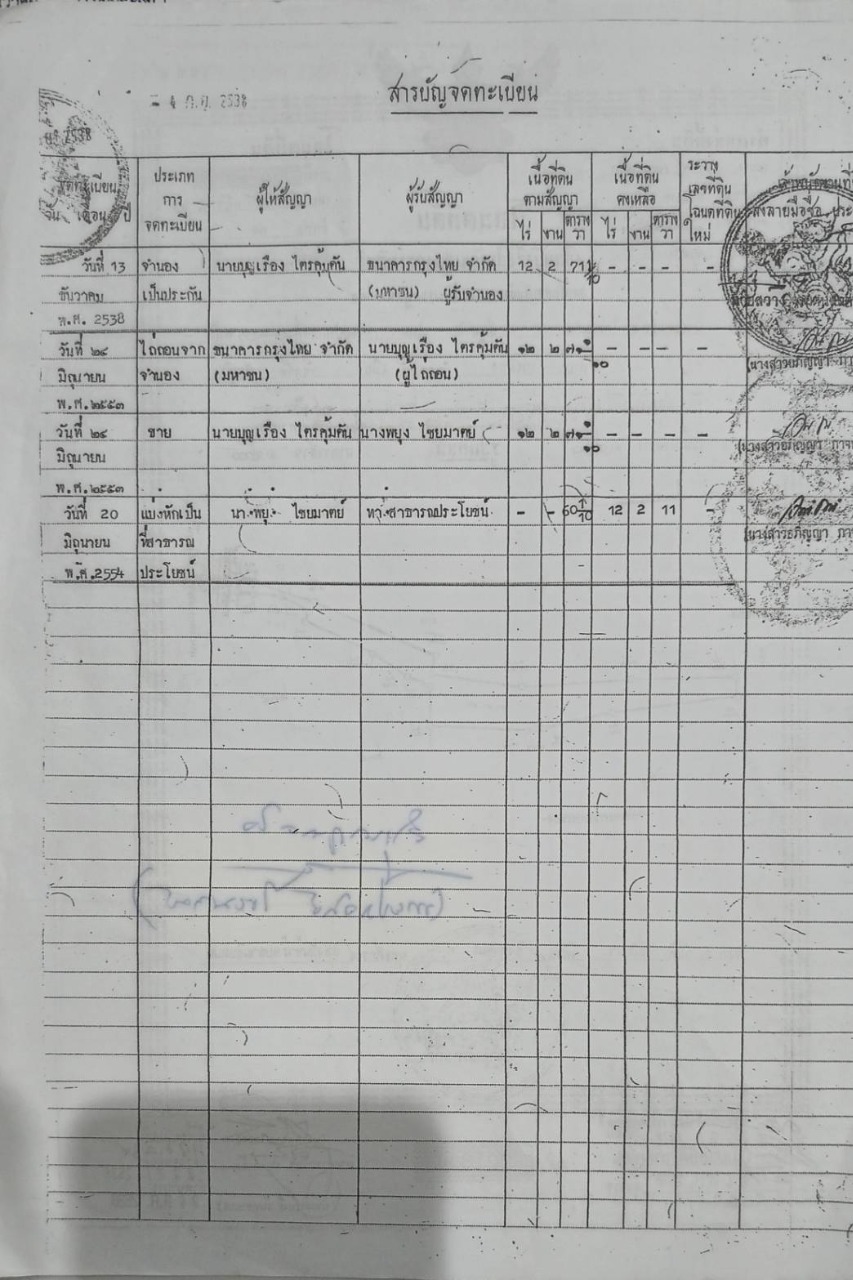 - 4 ก.ย. 2538
สารบัญจดทะเบียน
2538
จดทะเบียน
วัน เดือน ปี
ประเภท
การ
จดทะเบียน
ผู้ให้สัญญา
ผู้รับสัญญา
เนื้อที่ดิน
ตามสัญญา
ไร่ งาน ตาราง
วา
เนื้อที่ดิน
คงเหลือ
ไร่ งาน ตาราง
วา
ระวาง
เลขที่ดิน
โฉนดที่ดิน
ใหม่
วันที่ 13 จำนอง นายบุญเรือง ไตรคุ้มดัน ธนาคารกรุงไทย จำกัด 12 2 71 1/10 - - - -
ธันวาคม เป็นประกัน (มหาชน) ผู้รับจำนอง
พ.ศ. 2538
วันที่ ๒๔ ไถ่ถอนจาก ธนาคารกรุงไทย จำกัด นายบุญเรือง ไตรคุ้มดัน ๑๒ ๒ ๗๑ ๑/๑๐ - - - -
มิถุนายน จำนอง (มหาชน) (ผู้ไถ่ถอน)
พ.ศ.๒๕๕๓
วันที่ ๒๔ ขาย นายบุญเรือง ไตรคุ้มดัน นางพยุง ไชยมาตย์ ๑๒ ๒ ๗๑ ๑/๑๐ - - - -
มิถุนายน
พ.ศ.๒๕๕๓
วันที่ 20 แบ่งหักเป็น นางพยุง ไชยมาตย์ ทางสาธารณประโยชน์ - - 60 1/10 12 2 11 -
มิถุนายน ที่สาธารณ
พ.ศ.2554 ประโยชน์
(นางสาวอภิญญา
(นางสาวอภิญญา
(นางสาวอภิญญา